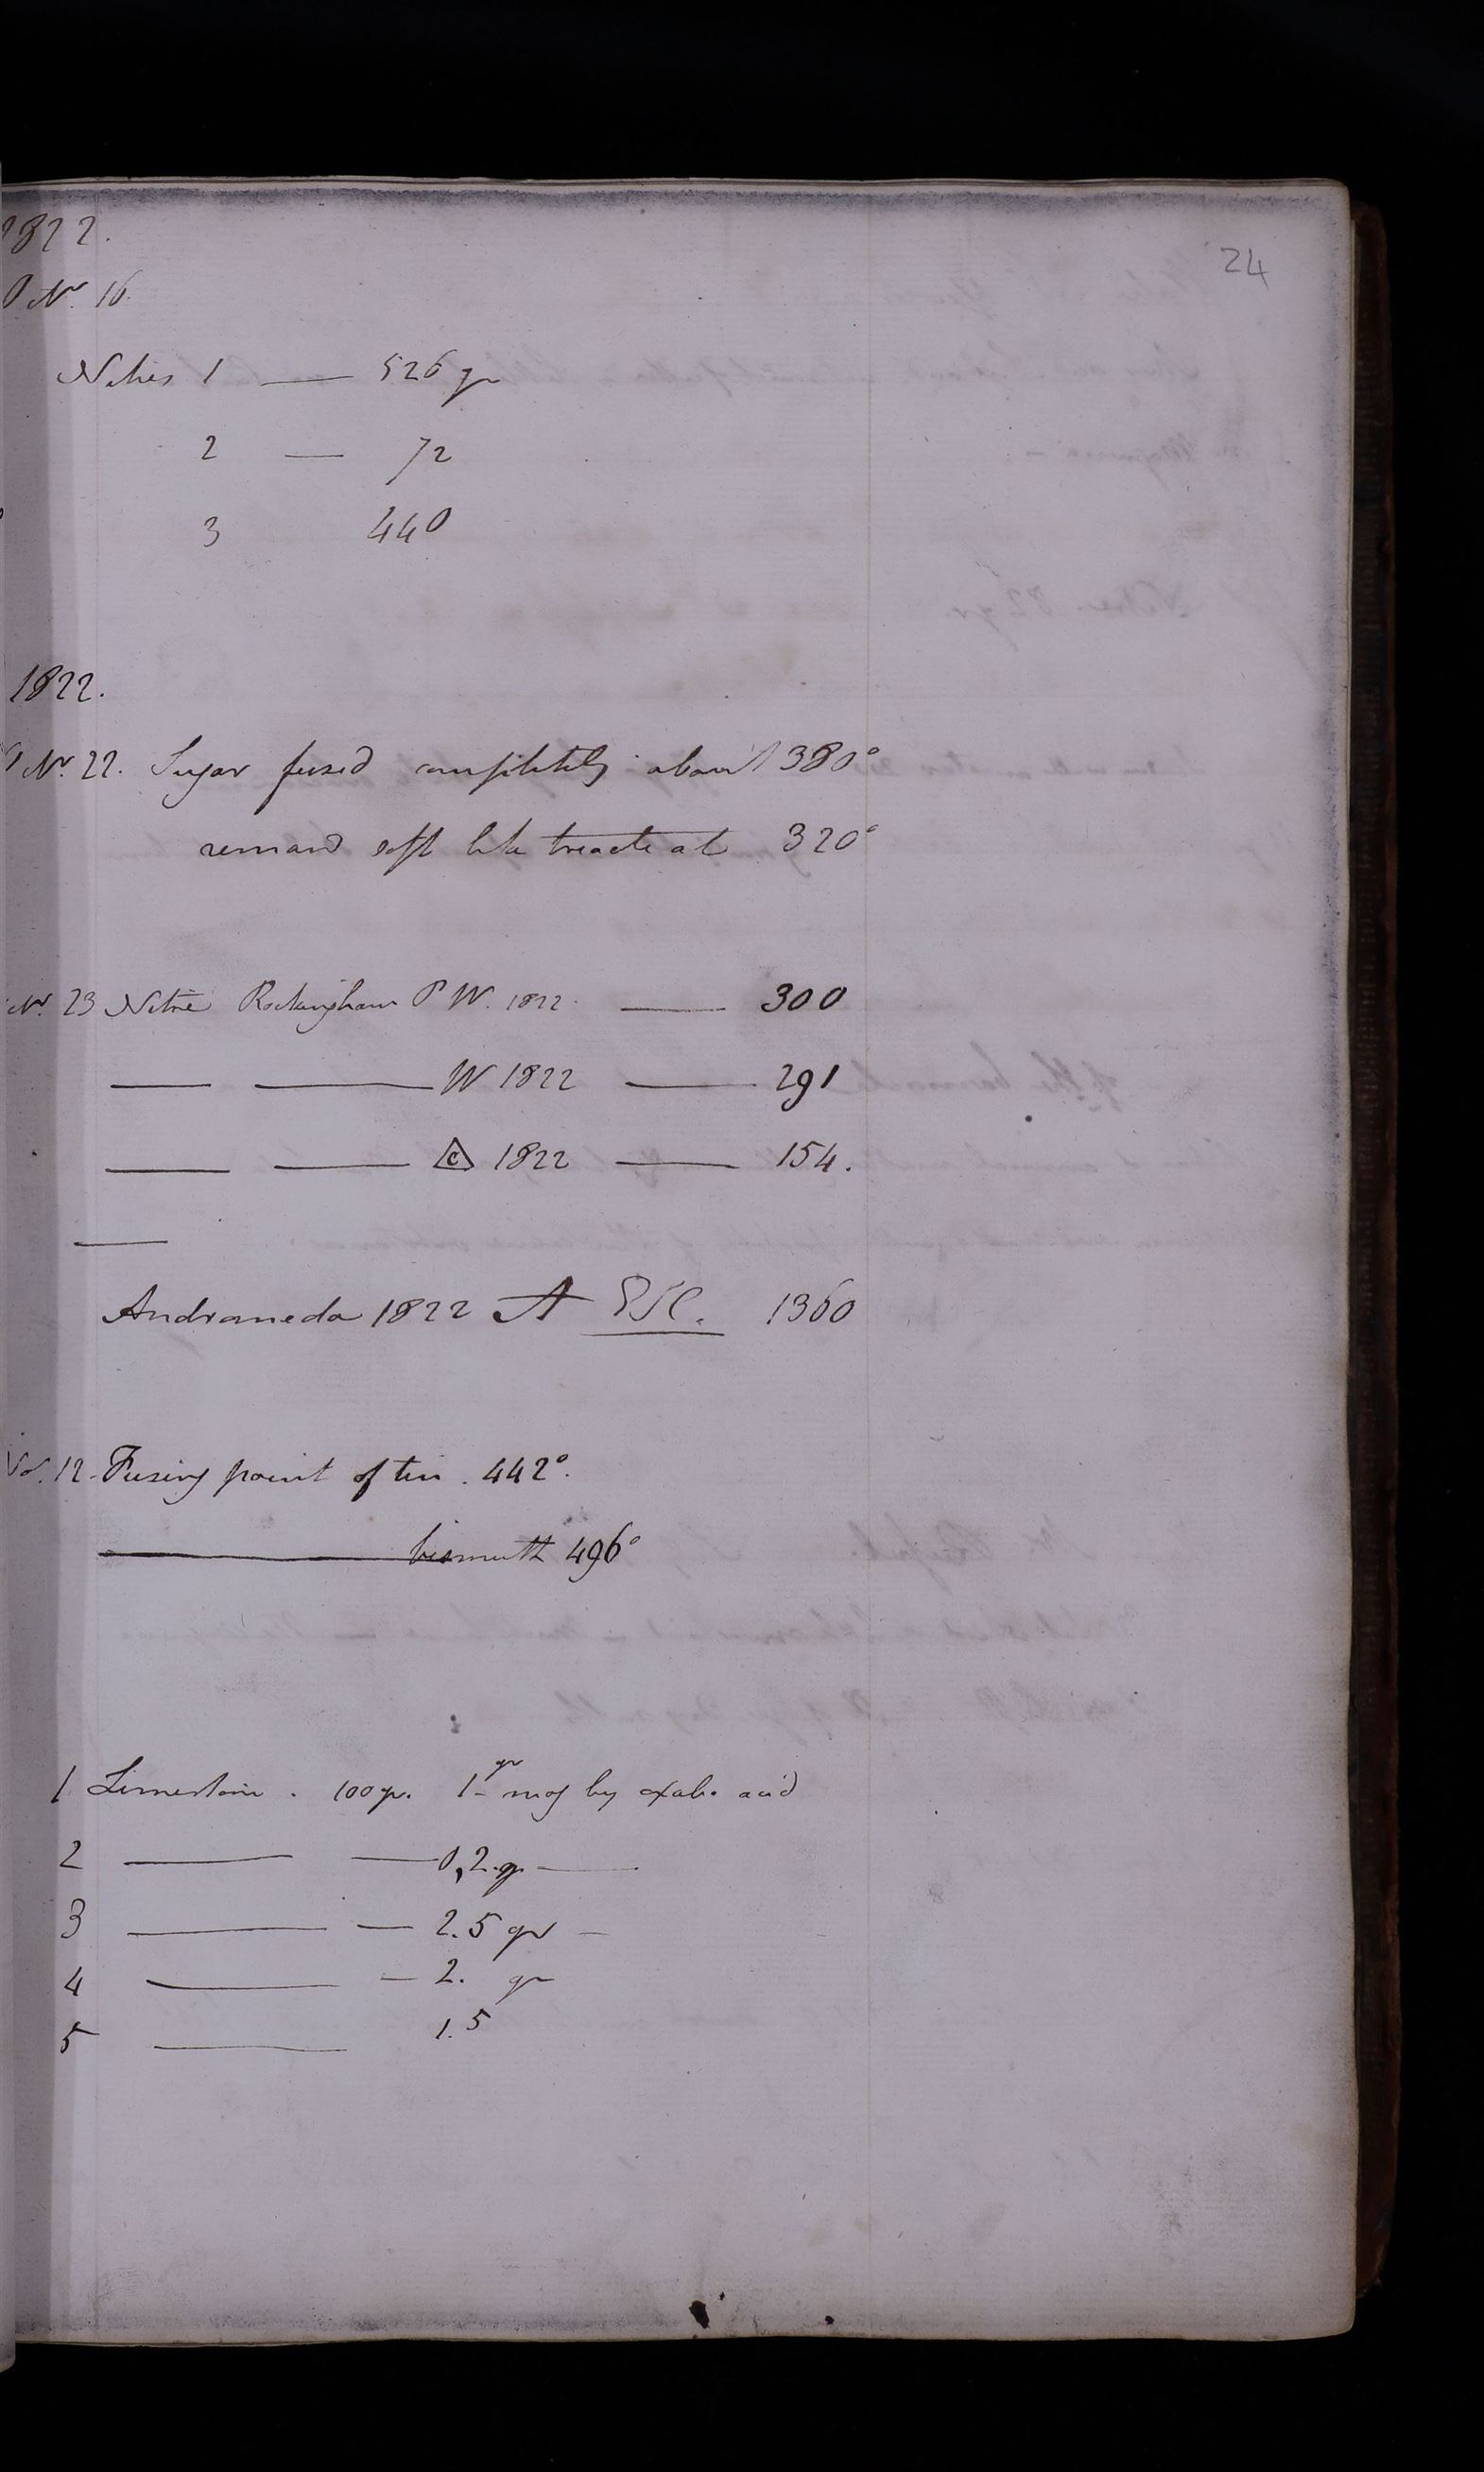 1822.
24
Nr. 16.
Nitres 1 — 526 gr
2 — 72
3 440
1822.
Nr. 22. Sugar fused completely about 380°
remand soft like treacle at 320°
Nr. 23 Nitre Rockingham P W. 1822. — 300
— — W 1822 — 291
— — C 1822 — 154.
—
Andromeda 1822 A 1360
12. Fusing point of tin. 442°.
— bismuth 496°
1 Limestone. 100 gr. 1 gr mag by oxalic acid
2 — — 0,2 gr —
3 — — 2.5 gr —
4 — — 2. gr
5 — 1.5